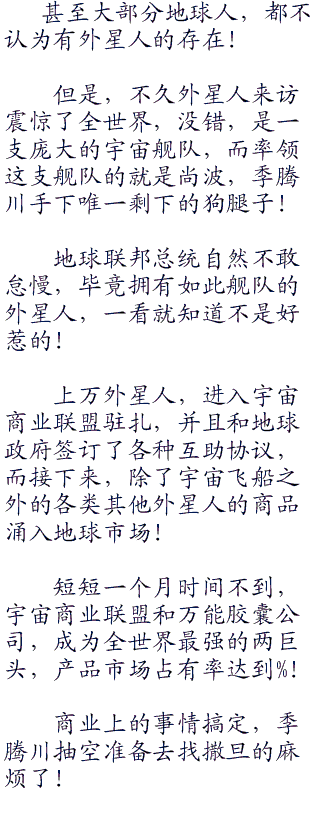 甚至大部分地球人，都不
认为有外星人的存在！
但是，不久外星人来访
震惊了全世界，没错，是一
支庞大的宇宙舰队，而率领
这支舰队的就是尚波，季腾
川手下唯一剩下的狗腿子！
地球联邦总统自然不敢
怠慢，毕竟拥有如此舰队的
外星人，一看就知道不是好
惹的！
上万外星人，进入宇宙
商业联盟驻扎，并且和地球
政府签订了各种互助协议，
而接下来，除了宇宙飞船之
外的各类其他外星人的商品
涌入地球市场！
短短一个月时间不到，
宇宙商业联盟和万能胶囊公
司，成为全世界最强的两巨
头，产品市场占有率达到%！
商业上的事情搞定，季
腾川抽空准备去找撒旦的麻
烦了！